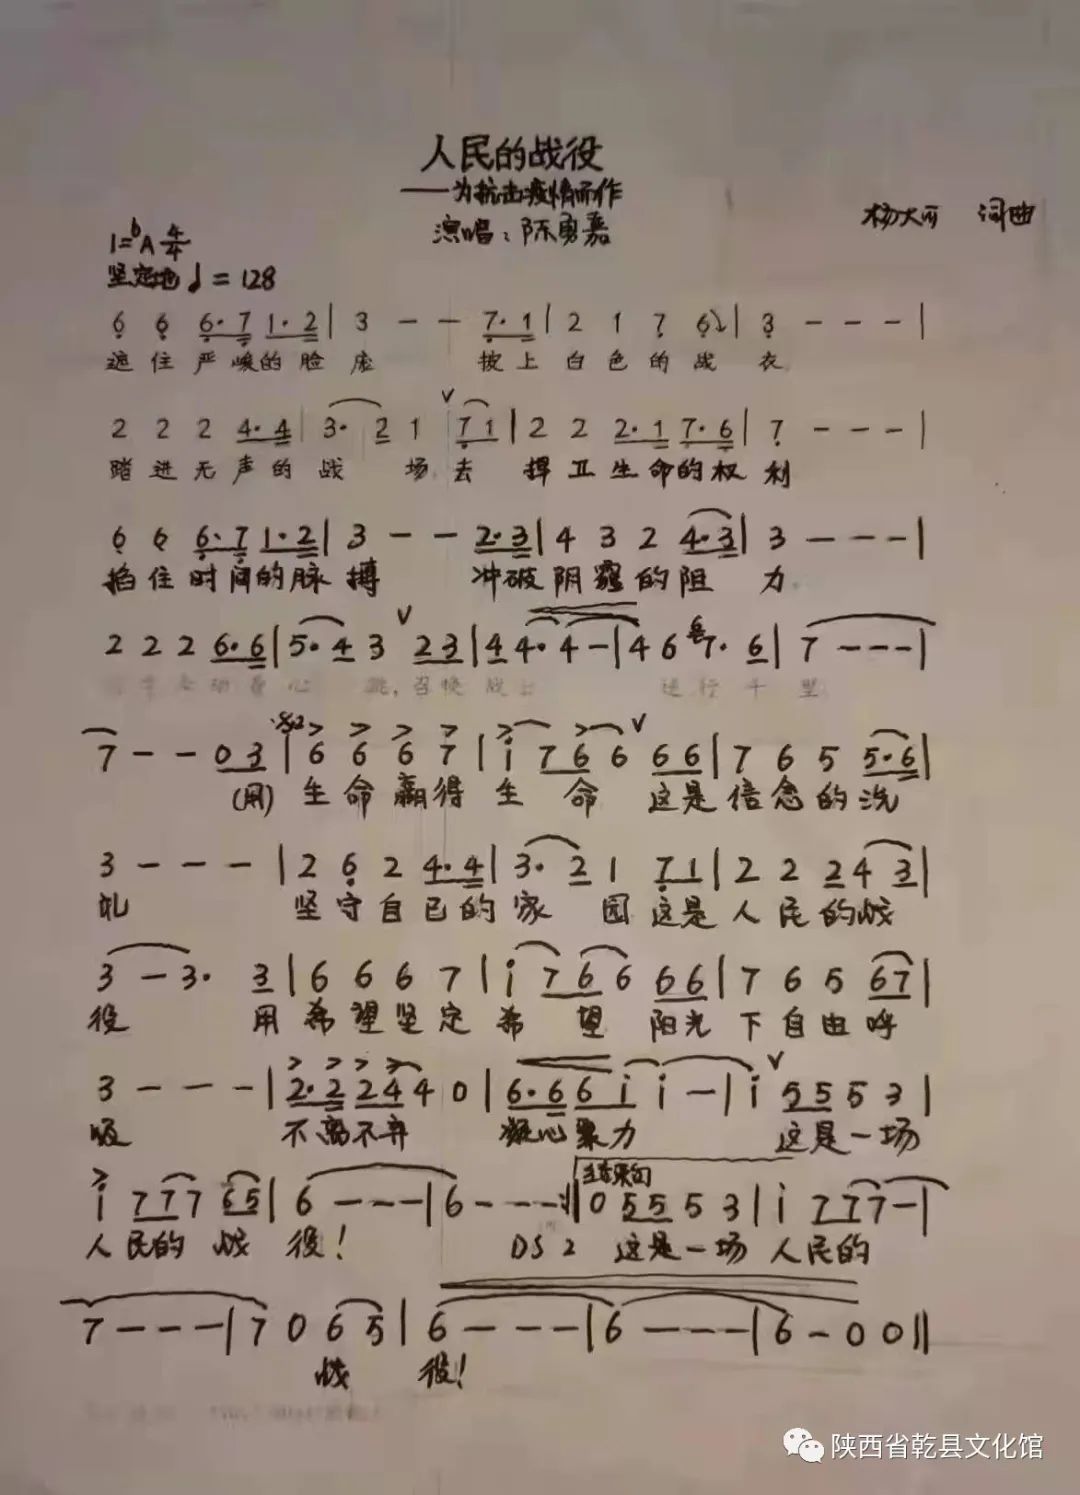 人民的战役
——为抗击疫情而作
演唱：陈勇嘉
杨大 词曲
1=bA 4/4
坚定地 ♩=128
6 6 6·7 1·2 | 3 — — 7·1 | 2 1 7 6 | 3 — — — |
遮住严峻的脸庞 披上白色的战衣
2 2 2 4·4 | 3· 2 1 7 1 | 2 2 2·1 7·6 | 7 — — — |
踏进无声的战场去 捍卫生命的权利
6 6 6·7 1·2 | 3 — — 2·3 | 4 3 2 4·3 | 3 — — — |
掐住时间的脉搏 冲破阴霾的阻力
2 2 2 6·6 | 5·4 3 2 3 | 4 4· 4 — | 4 6 7· 6 | 7 — — — |
心跳,召唤战士 逆行千里
7 — — 0 3 | 6 6 6 7 | i 7 6 6 6 6 | 7 6 5 5·6 |
(用) 生命赢得生命 这是信念的洗
3 — — — | 2 6 2 4·4 | 3· 2 1 7 1 | 2 2 2 4 3 |
礼 坚守自己的家园 这是人民的战
3 — 3· 3 | 6 6 6 7 | i 7 6 6 6 6 | 7 6 5 6 7 |
役 用希望坚定希望 阳光下自由呼
3 — — — | 2·2 2 4 4 0 | 6·6 6 i i — | i 5 5 5 3 |
吸 不离不弃 凝心聚力 这是一场
i 7 7 7 6 5 | 6 — — — | 6 — — — :‖ 结束句 0 5 5 5 3 | i 7 7 7 — |
人民的战役! DS 2 这是一场人民的
7 — — — | 7 0 6 5 | 6 — — — | 6 — — — | 6 — 0 0 ‖
战役!
陕西省乾县文化馆